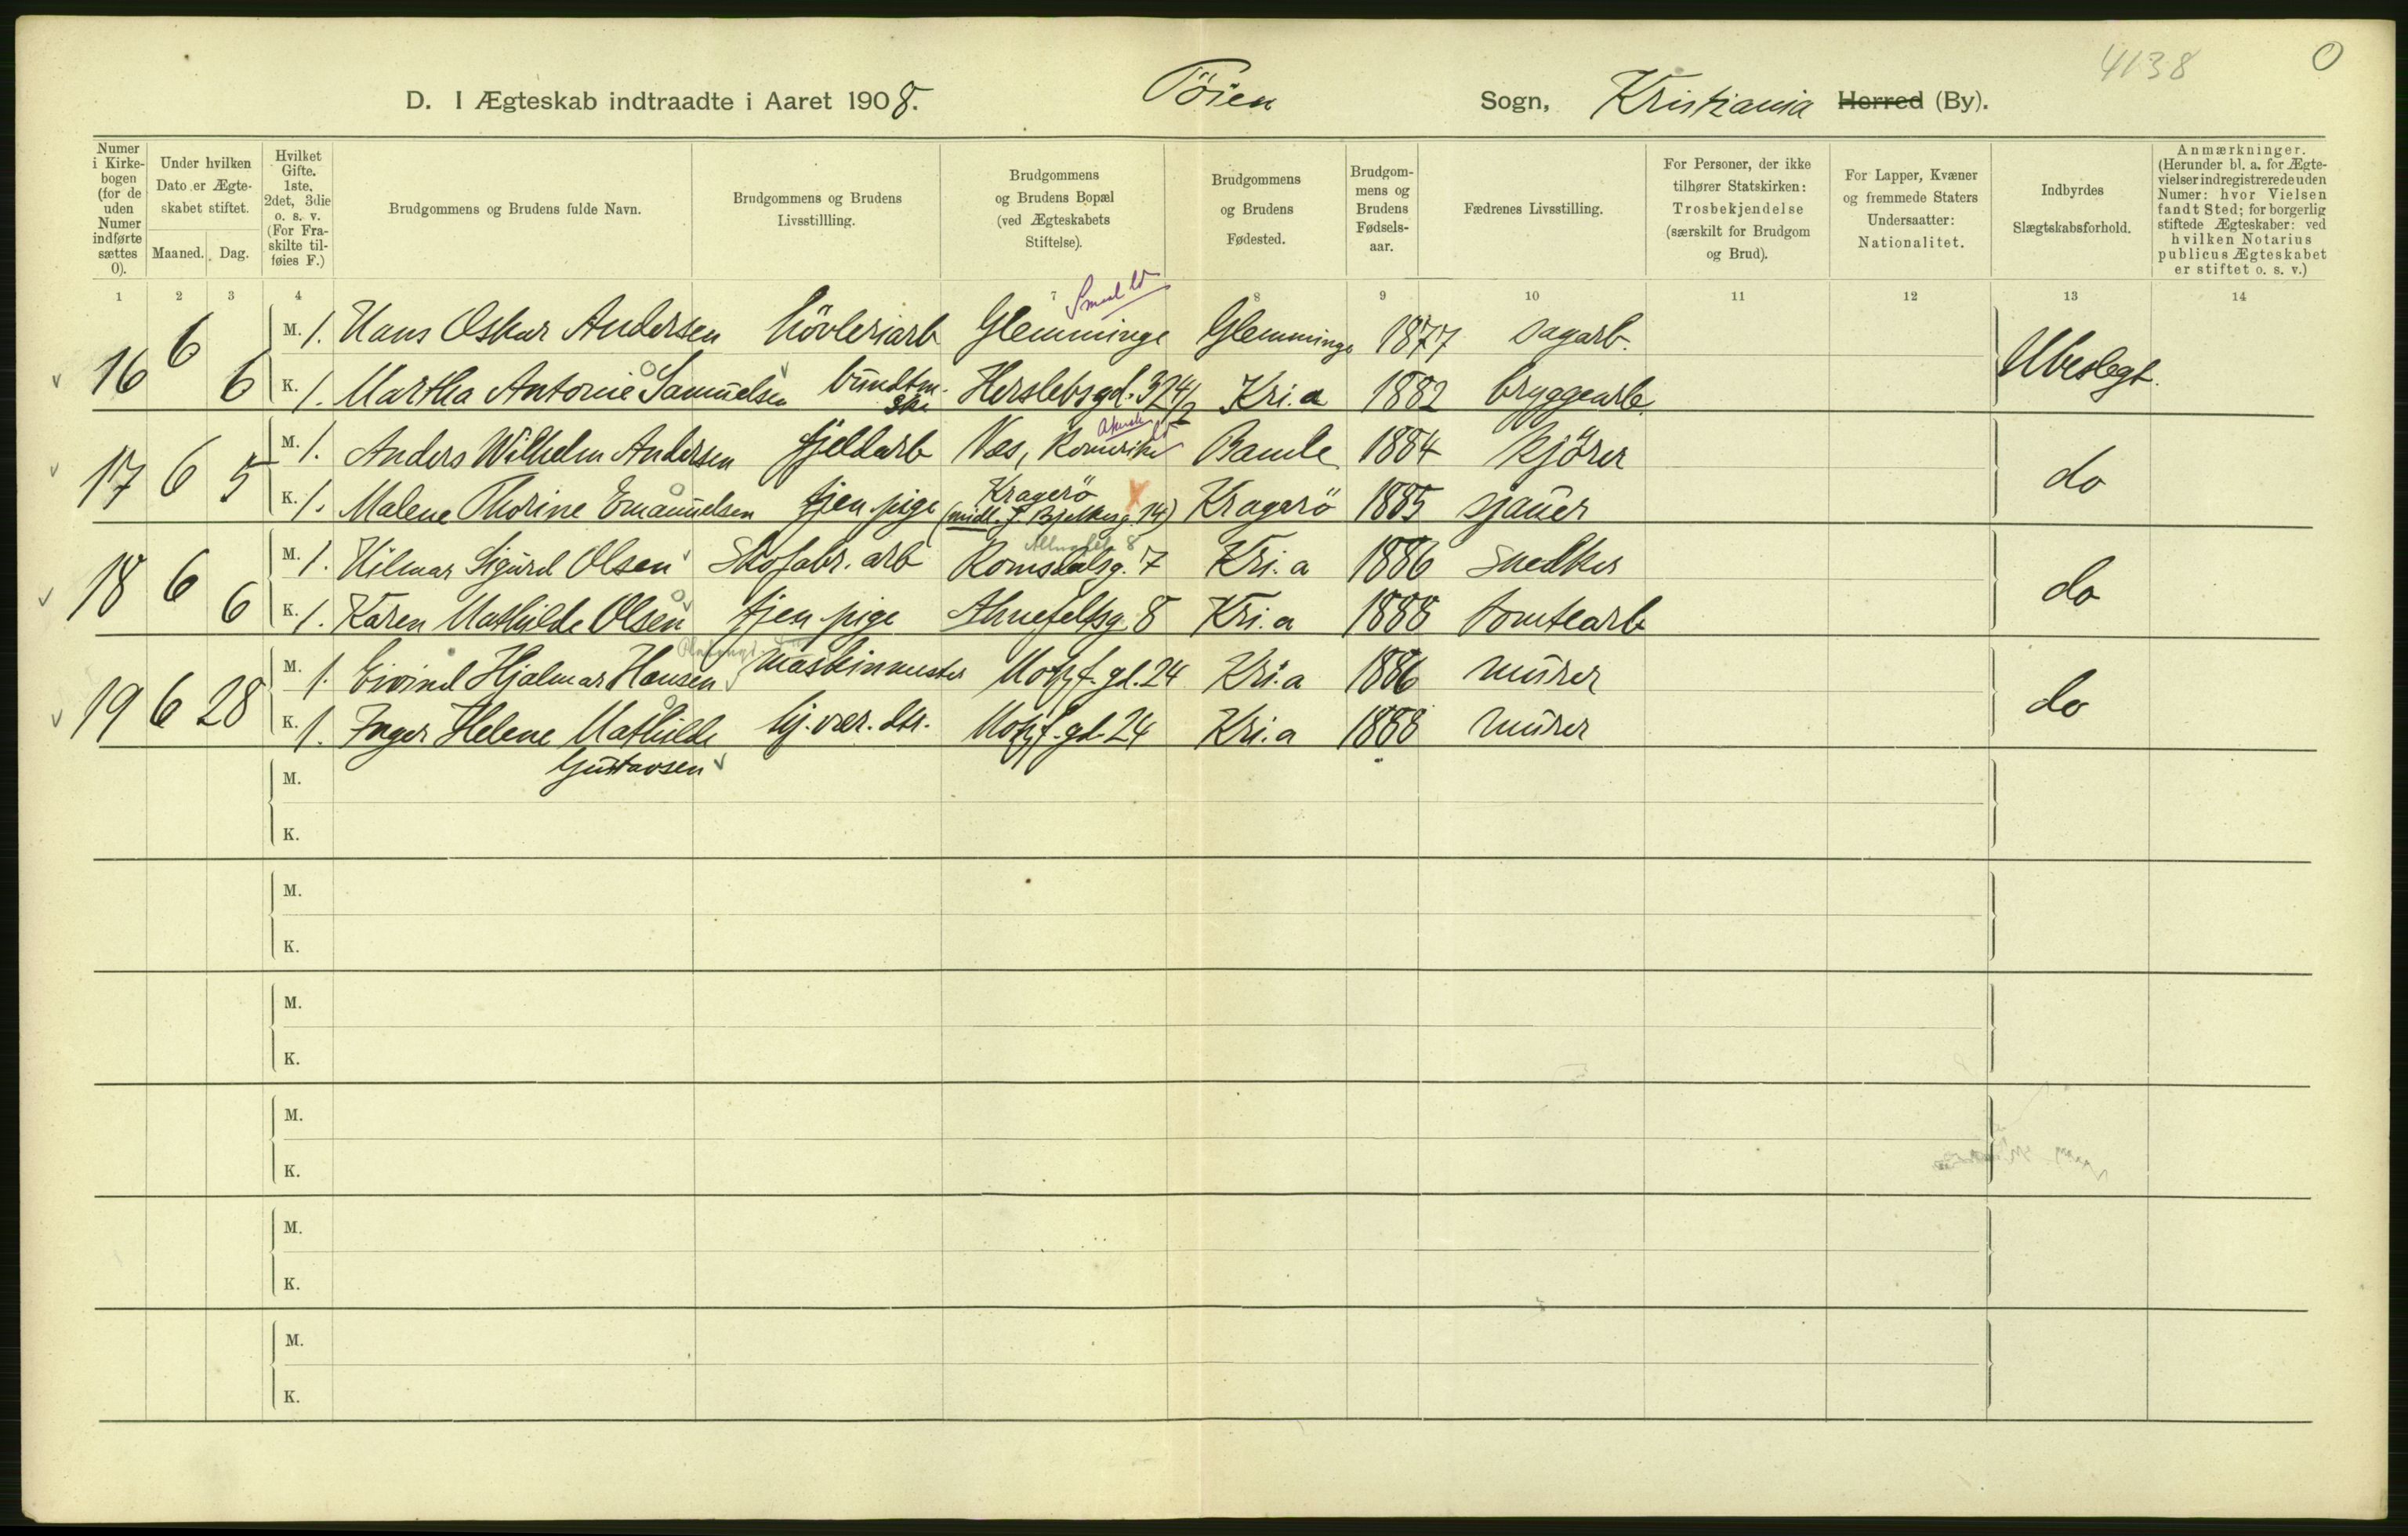 4138 0
D. I Ægteskab indtraadte i Aaret 1908. Töien Sogn, Kristiania Herred (By).
Numer i Kirkebogen (for de uden Numer indførte sættes 0).
Under hvilken Dato er Ægteskabet stiftet.
Maaned. Dag.
Hvilket Gifte. 1ste, 2det, 3die o. s. v. (For Fraskilte tilføies F.)
Brudgommens og Brudens fulde Navn.
Brudgommens og Brudens Livsstillling.
Brudgommens og Brudens Bopæl (ved Ægteskabets Stiftelse).
Brudgommens og Brudens Fødested.
Brudgommens og Brudens Fødselsaar.
Fædrenes Livsstilling.
For Personer, der ikke tilhører Statskirken: Trosbekjendelse (særskilt for Brudgom og Brud).
For Lapper, Kvæner og fremmede Staters Undersaatter: Nationalitet.
Indbyrdes Slægtskabsforhold.
Anmærkninger. (Herunder bl. a. for Ægtevielser indregistrerede uden Numer: hvor Vielsen fandt Sted; for borgerlig stiftede Ægteskaber: ved hvilken Notarius publicus Ægteskabet er stiftet o. s. v.)
1 2 3 4 7 8 9 10 11 12 13 14
16 6 6 M. 1. Hans Oskar Andersen hövleriarb Glemminge Glemminge 1877 sagarb. Ubeslegt.
K. 1. Martha Antonie Samuelsen bundtm. ske Herslebsgd. 32 4/2 Kri.a 1882 bryggearb.
17 6 5 M. 1. Anders Wilhelm Andersen fjeldarb Næs, Romerike Bamle 1884 kjörer do
K. 1. Malene Thorine Emanuelsen tjen pige Kragerö (midl. J. Bjelkesg. 14) Kragerö 1885 sjauer
18 6 6 M. 1. Hilmar Sigurd Olsen Skofabr. arb Romsdalsg. 7 Kri.a 1886 snedker do
K. 1. Karen Mathilde Olsen tjen pige Ahnefeltsg 8 Kri.a 1888 tomtearb
19 6 28 M. 1. Eivind Hjalmar Hansen maskinmester Motzf. gd. 24 Kri.a 1886 murer do
K. 1. Inger Helene Mathilde hj. vær. dtr. Motzf. gd. 24 Kri.a 1888 murer
Gustavsen
M.
K.
M.
K.
M.
K.
M.
K.
M.
K.
M.
K.